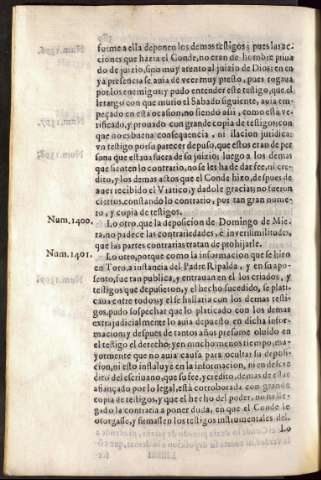 forme a ella deponen los demas testigos; pues las ac-
ciones que hazia el Conde, no eran de hombre priua
do de juizio, sino muy atento al juizio de Dios; en cu
ya presencia se auia de ver muy presto, pues rogaua
por los enemigos; y pudo entender este testigo, que el
letargo con que murio el Sabado siguiente, auia em-
peçado en esta ocasion, no siendo assi, como està ve-
rificado, y prouado con grande copia de testigos; con
que no es buena consequencia, ni ilacion juridica:
vn testigo pudo parecer depuso, que estos eran de per
sona que estaua fuera de su juizio; luego a los demas
que sienten lo contrario, no se les ha de dar fee, ni cre-
dito, y los demas actos que el Conde hizo, despues de
auer recibido el Viatico, y dadole gracias, no fueron
ciertos, constando lo contrario, por tan gran nume-
ro, y copia de testigos.
Num. 1400.
Lo otro, que la deposicion de Domingo de Mie-
ra, no padece las contrariedades, è inverisimilitudes,
que las partes contrarias tratan de prohijarle.
Num. 1401.
Lo otro, porque como la informacion que se hizo
en Toro, a instancia del Padre Ripalda, y en su apo-
sento, fue tan publica, y entrauan en el los criados, y
testigos que depusieron, y el hecho sucedido, se plati-
caua entre todos; y el se hallaria con los demas testi-
gos, pudo sospechar que lo platicado con los demas
extrajudicialmente lo auia depuesto en dicha infor-
macion; y despues de tantos años presume oluido en
el testigo el derecho; y en mucho menos tiempo, ma-
yormente que no auia causa para ocultar su deposi-
cion, ni esto instaluye en la informacion, ni en del cre
dito del escriuano, que su fee, y credito, demas de estar
afiançado por lo legal, està corroborada con grande
copia de testigos, y que el hecho del poder, no ha lle-
gado la contraria a poner duda, en que el Conde le
otorgasse, y firmassen los testigos instrumentales del.
Lo